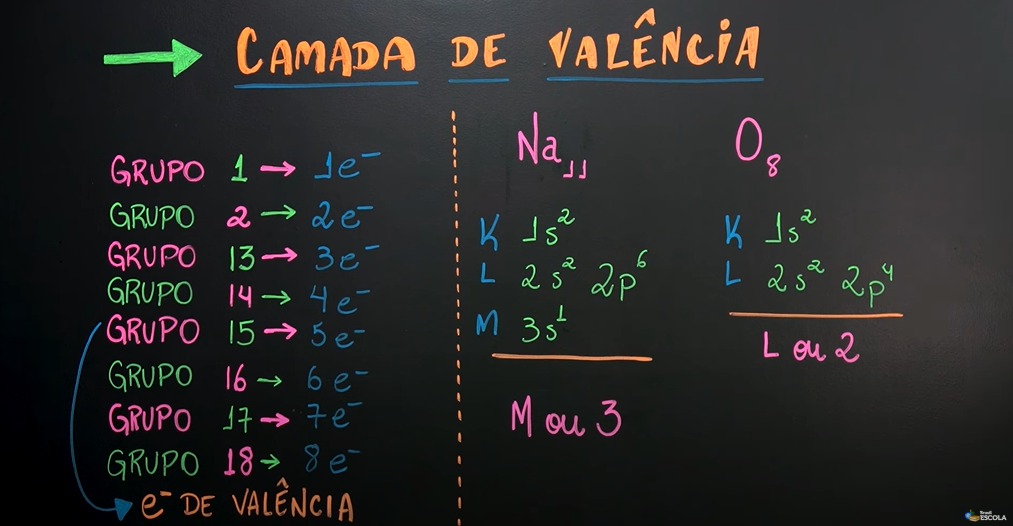 CAMADA DE VALÊNCIA
GRUPO 1 → 1e⁻
GRUPO 2 → 2e⁻
GRUPO 13 → 3e⁻
GRUPO 14 → 4e⁻
GRUPO 15 → 5e⁻
GRUPO 16 → 6e⁻
GRUPO 17 → 7e⁻
GRUPO 18 → 8e⁻
e⁻ DE VALÊNCIA
Na₁₁
K 1s²
L 2s² 2p⁶
M 3s¹
M ou 3
O₈
K 1s²
L 2s² 2p⁴
L ou 2
Brasil
ESCOLA